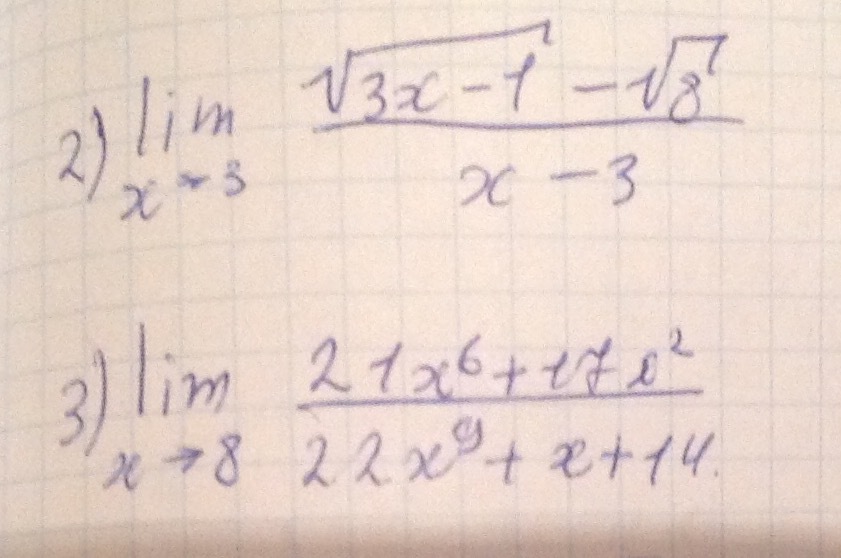 2) lim x→3 (√(3x-1) - √8) / (x-3)
3) lim x→8 (21x⁶+17x²) / (22x⁹+x+14)